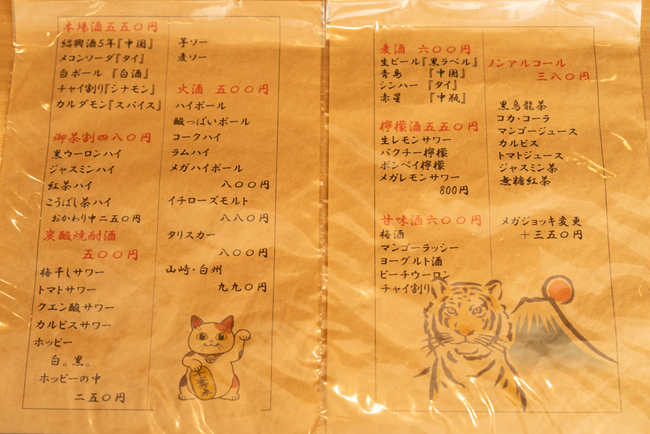 本場酒五五〇円
紹興酒5年『中国』
メコンソーダ『タイ』
白ボール 『白酒』
チャイ割り『シナモン』
カルダモン『スパイス』
御茶割四八〇円
黒ウーロンハイ
ジャスミンハイ
紅茶ハイ
こうばし茶ハイ
おかわり中二五〇円
炭酸焼酎酒
五〇〇円
梅干しサワー
トマトサワー
クエン酸サワー
カルピスサワー
ホッピー
白。黒。
ホッピーの中
二五〇円
芋ソー
麦ソー
火酒 五〇〇円
ハイボール
酸っぱいボール
コークハイ
ラムハイ
メガハイボール
八〇〇円
イチローズモルト
八八〇円
タリスカー
八〇〇円
山崎・白州
九九〇円
麦酒 六〇〇円
生ビール『黒ラベル』
青島 『中国』
シンハー 『タイ』
赤星 『中瓶』
檸檬酒五五〇円
生レモンサワー
パクチー檸檬
ボンベイ檸檬
メガレモンサワー
800円
甘味酒六〇〇円
梅酒
マンゴーラッシー
ヨーグルト酒
ピーチウーロン
チャイ割り
ノンアルコール
三八〇円
黒烏龍茶
コカ・コーラ
マンゴージュース
カルピス
トマトジュース
ジャスミン茶
無糖紅茶
メガジョッキ変更
＋三五〇円